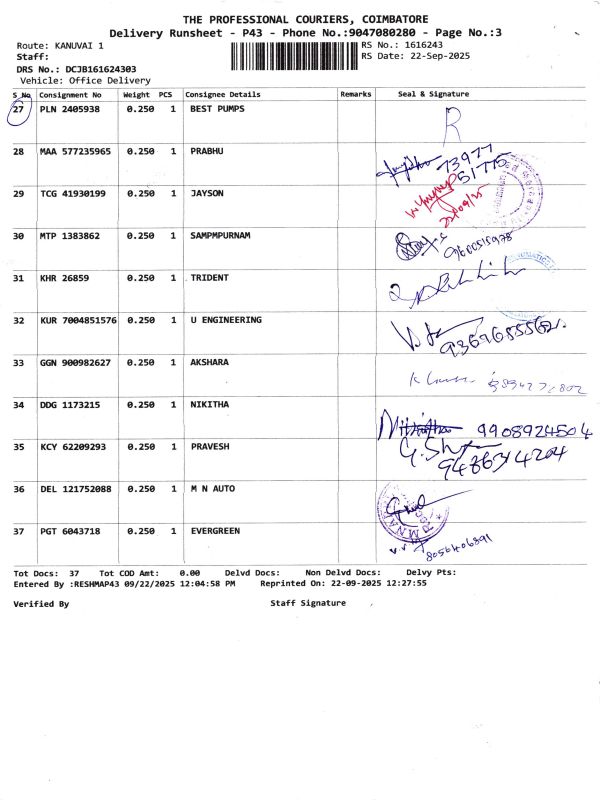 THE PROFESSIONAL COURIERS, COIMBATORE
Delivery Runsheet - P43 - Phone No.:9047080280 - Page No.:3
Route: KANUVAI 1 RS No.: 1616243
Staff: RS Date: 22-Sep-2025
DRS No.: DCJB161624303
Vehicle: Office Delivery
S No Consignment No Weight PCS Consignee Details Remarks Seal & Signature
27 PLN 2405938 0.250 1 BEST PUMPS R
28 MAA 577235965 0.250 1 PRABHU 73977
51775
29 TCG 41930199 0.250 1 JAYSON 22/09/25
30 MTP 1383862 0.250 1 SAMPMPURNAM 9600515978
31 KHR 26859 0.250 1 TRIDENT
32 KUR 7004851576 0.250 1 U ENGINEERING
33 GGN 900982627 0.250 1 AKSHARA
34 DDG 1173215 0.250 1 NIKITHA 9908924504
35 KCY 62209293 0.250 1 PRAVESH
36 DEL 121752088 0.250 1 M N AUTO
37 PGT 6043718 0.250 1 EVERGREEN 8056406391
Tot Docs: 37 Tot COD Amt: 0.00 Delvd Docs: Non Delvd Docs: Delvy Pts:
Entered By :RESHMAP43 09/22/2025 12:04:58 PM Reprinted On: 22-09-2025 12:27:55
Verified By Staff Signature